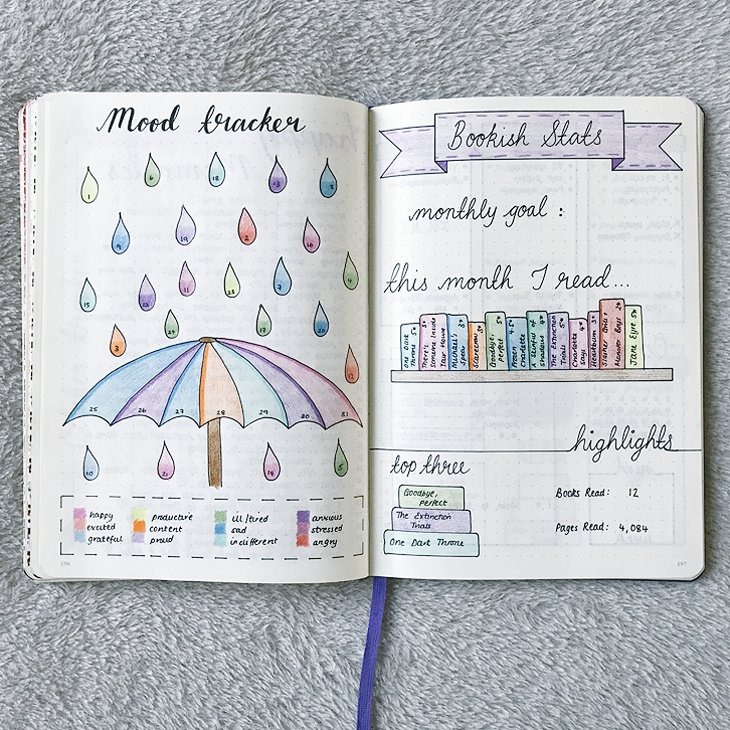 Mood tracker
1
6
18
13
8
9
19
2
16
15
23
11
22
4
3
24
17
20
12
25 26 27 28 29 30 31
10
21
14
5
happy productive ill/tired anxious
excited content sad stressed
grateful proud indifferent angry
196
Bookish Stats
monthly goal :
this month I read...
One Dark Throne 5*
There's Someone Inside Your House
Scarecrow 3*
Goodbye, perfect 5*
Frozen Charlotte 4.5*
A Semblance of Shadows 4*
The Extinction Trials 5*
Charlotte Says 4*
Heartburn 3*
Slasher Girls + Monster Boys 2*
Jane Eyre 5*
highlights
top three
Goodbye, perfect
The Extinction Trials
One Dark Throne
Books Read: 12
Pages Read: 4,084
197